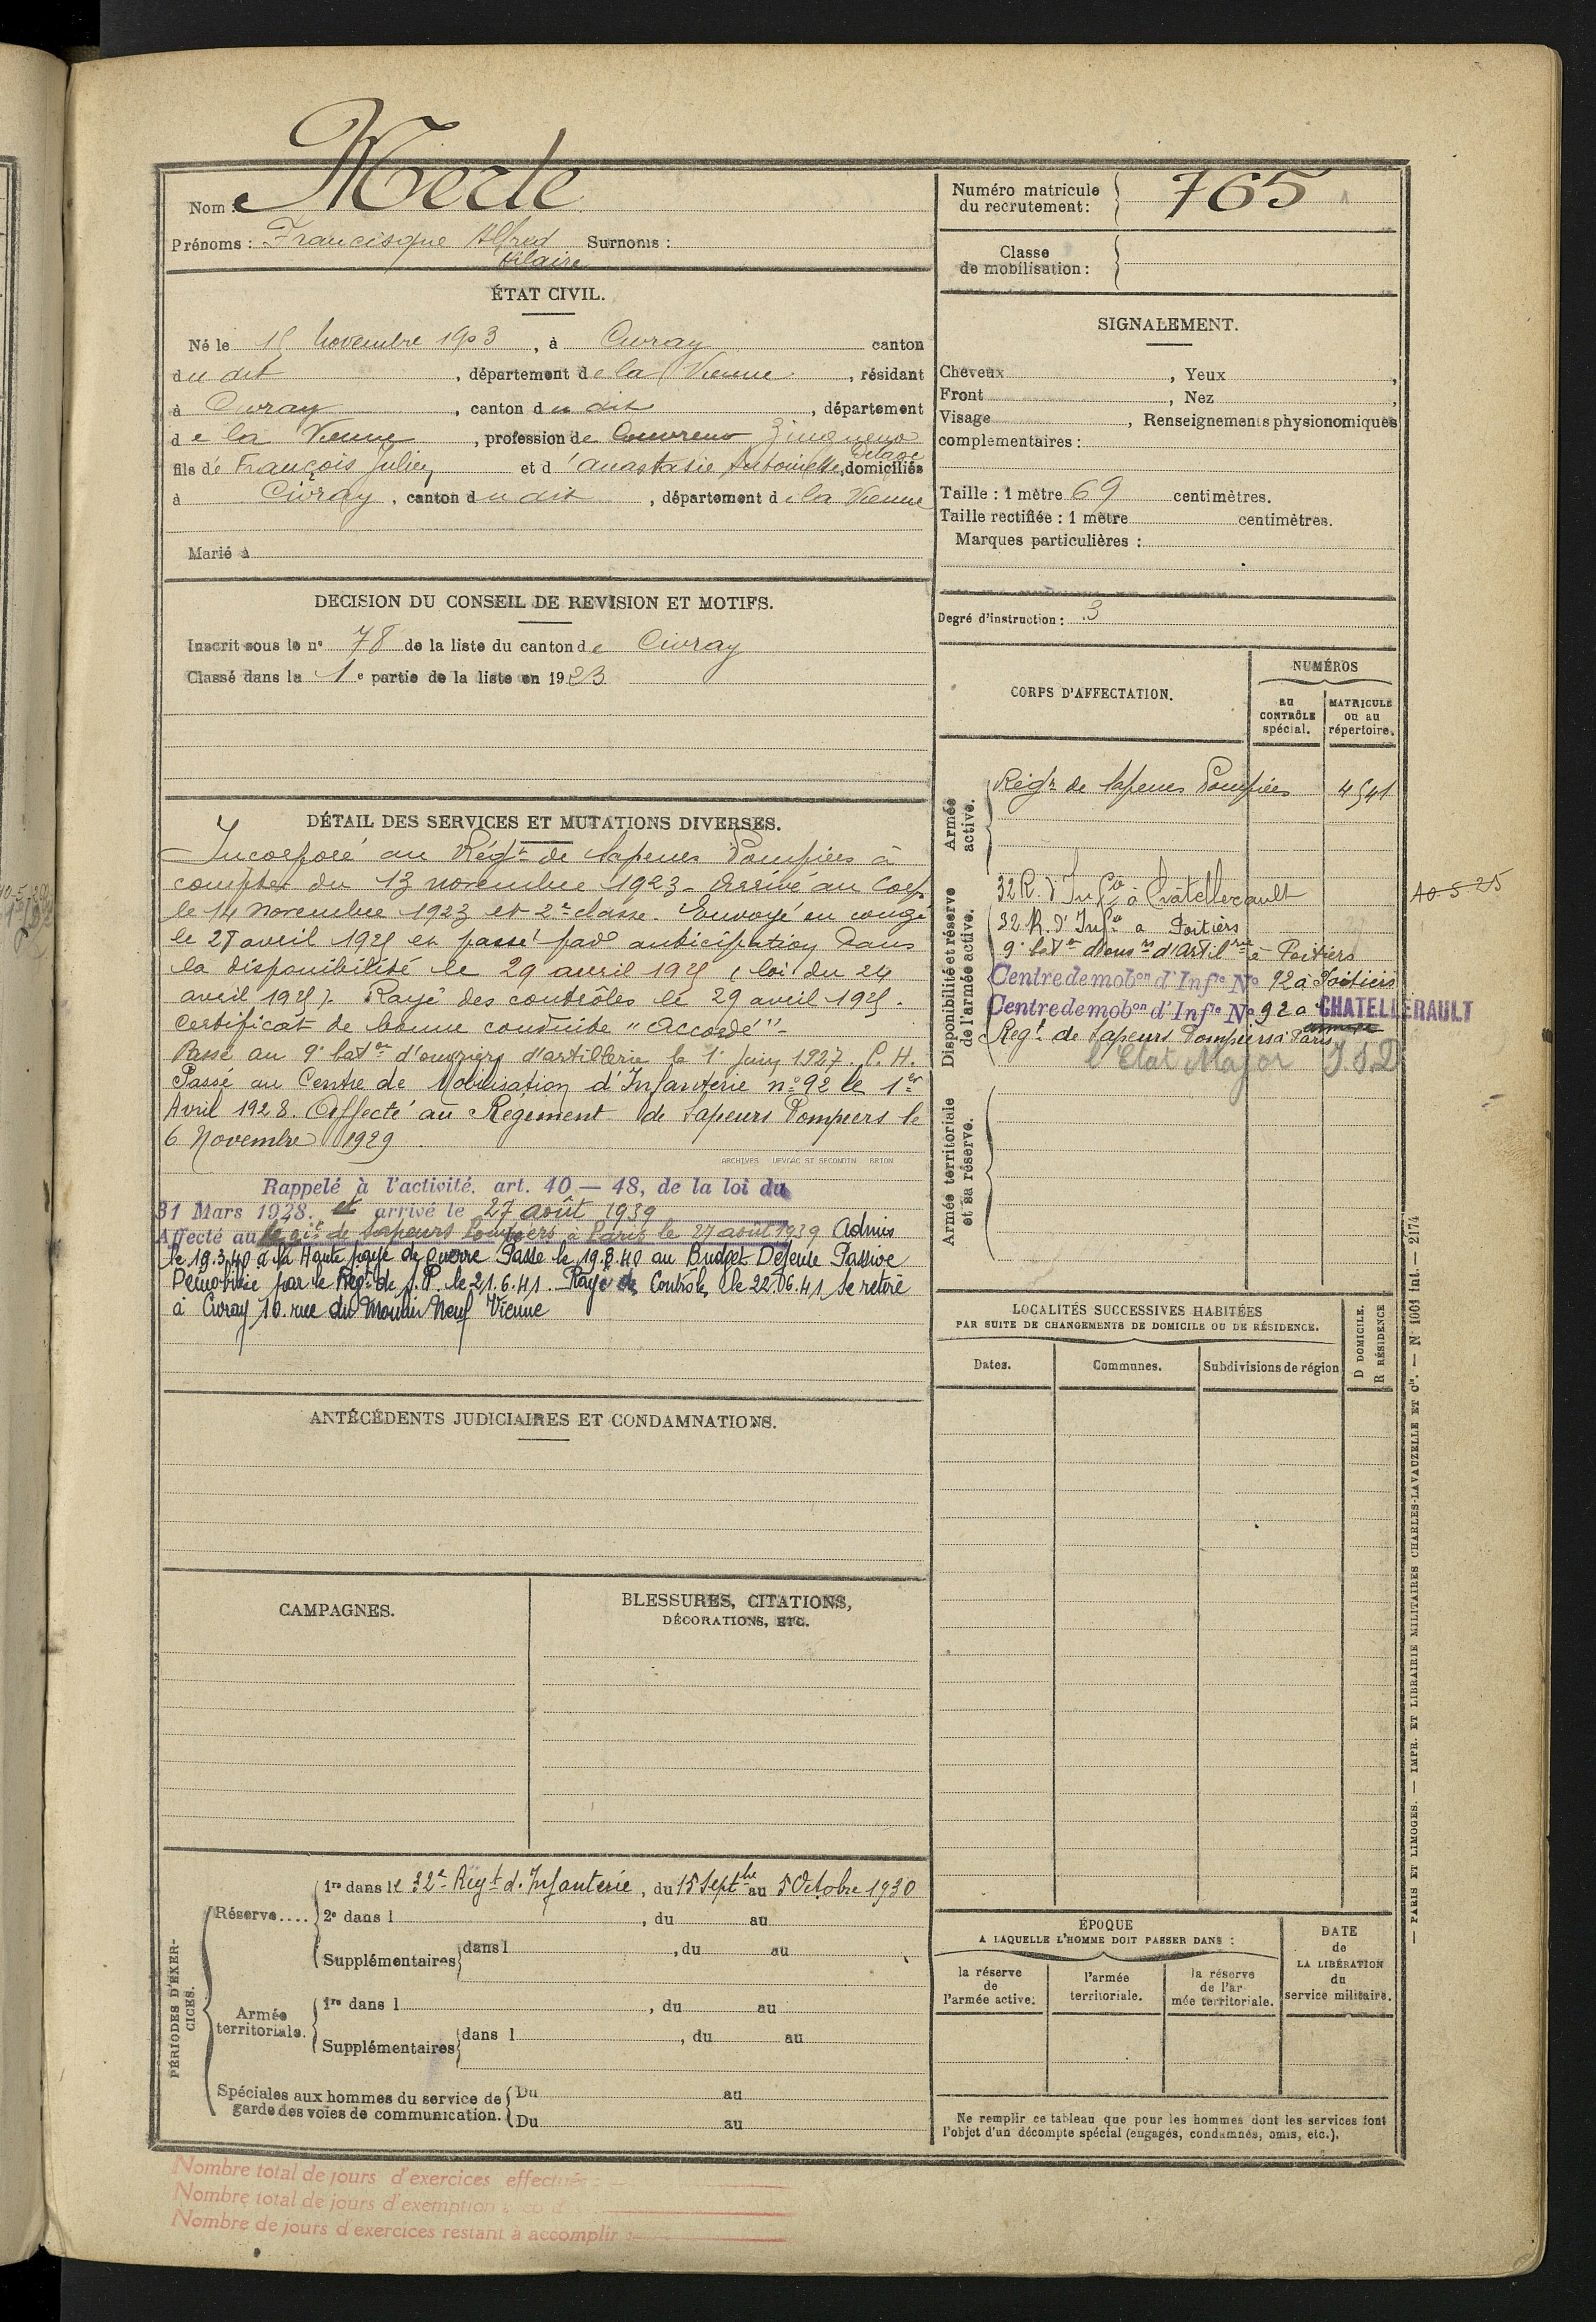 Nom : Merle
Prénoms : Francisque Alfred Surnoms :
Hilaire
ÉTAT CIVIL.
Né le 15 Novembre 1903, à Civray canton
du dit, département de la Vienne, résidant
à Civray, canton du dit, département
de la Vienne, profession de Couvreur Zingueur
fils de François Julien et d'Anastasie Antoinette Delage, domiciliés
à Civray, canton du dit, département de la Vienne
Marié à
DECISION DU CONSEIL DE REVISION ET MOTIFS.
Inscrit sous le n° 78 de la liste du canton de Civray
Classé dans la 1e partie de la liste en 1923
DÉTAIL DES SERVICES ET MUTATIONS DIVERSES.
Incorporé au Régt de Sapeurs Pompiers à
compter du 13 novembre 1923 - Arrivé au Corps
le 14 novembre 1923 et 2e classe. Envoyé en congé
le 28 avril 1925 et passé par anticipation dans
la disponibilité le 29 avril 1925 (loi du 24
avril 1925). Rayé des contrôles le 29 avril 1925.
Certificat de bonne conduite "Accordé"-
Passé au 9e baton d'ouvriers d'artillerie le 1er Juin 1927. P. H.
Passé au Centre de Mobilisation d'Infanterie n° 92 le 1er
Avril 1928. Affecté au Régiment de Sapeurs Pompiers le
6 Novembre 1929
ARCHIVES - UFVGAC ST SECONDIN - BRION
Rappelé à l'activité. art. 40 — 48, de la loi du
31 Mars 1928. et arrivé le 27 août 1939
Affecté au Régit de Sapeurs Pompiers à Paris le 27 août 1939 Admis
le 19.3.40 à la Haute paye de guerre Passé le 19.8.40 au Budget Défense Passive
Démobilisé par le Régt de S.P. le 21.6.41. Rayé des Contrôles le 22.06.41 se retire
à Civray 10. rue du Moulin Neuf Vienne
ANTÉCÉDENTS JUDICIAIRES ET CONDAMNATIONS.
CAMPAGNES.
BLESSURES, CITATIONS,
DÉCORATIONS, ETC.
PÉRIODES D'EXER-
CICES.
Réserve....
1re dans le 32e Régt d'Infanterie, du 15 Septbre au 5 Octobre 1930
2e dans l , du au
Supplémentaires dans l , du au
Armée
territoriale.
1re dans l , du au
Supplémentaires dans l , du au
Spéciales aux hommes du service de
garde des voies de communication.
Du au
Du au
Nombre total de jours d'exercices effectués :
Nombre total de jours d'exemption
Nombre de jours d'exercices restant à accomplir :
Numéro matricule
du recrutement : 765
Classe
de mobilisation :
SIGNALEMENT.
Cheveux , Yeux ,
Front , Nez ,
Visage , Renseignements physionomiques
complémentaires :
Taille : 1 mètre 69 centimètres.
Taille rectifiée : 1 mètre centimètres.
Marques particulières :
Degré d'instruction : 3
CORPS D'AFFECTATION.
NUMÉROS
au
CONTRÔLE
spécial.
MATRICULE
ou au
répertoire.
Armée
active.
Régt de Sapeurs Pompiers 4541
Disponibilité et réserve
de l'armée active.
32 R. d'Infie à Chatellerault
10-5-25
32 R. d'Infie à Poitiers
9e baton d'ouvrs d'Artilrie à Poitiers
Centre de mobon d'Infie No 92 à Poitiers
Centre de mobon d'Infie No 92 a CHATELLERAULT
Regt de Sapeurs Pompiers à Paris
l'Etat Major
Armée territoriale
et sa réserve.
LOCALITÉS SUCCESSIVES HABITÉES
PAR SUITE DE CHANGEMENTS DE DOMICILE OU DE RÉSIDENCE.
D DOMICILE.
R RÉSIDENCE
Dates.
Communes.
Subdivisions de région
ÉPOQUE
A LAQUELLE L'HOMME DOIT PASSER DANS :
la réserve
de
l'armée active.
l'armée
territoriale.
la réserve
de l'ar-
mée territoriale.
DATE
de
LA LIBÉRATION
du
service militaire.
Ne remplir ce tableau que pour les hommes dont les services font
l'objet d'un décompte spécial (engagés, condamnés, omis, etc.).
— PARIS ET LIMOGES. — IMPR. ET LIBRAIRIE MILITAIRES CHARLES-LAVAUZELLE ET Cie. — N° 1001 int. — 2174